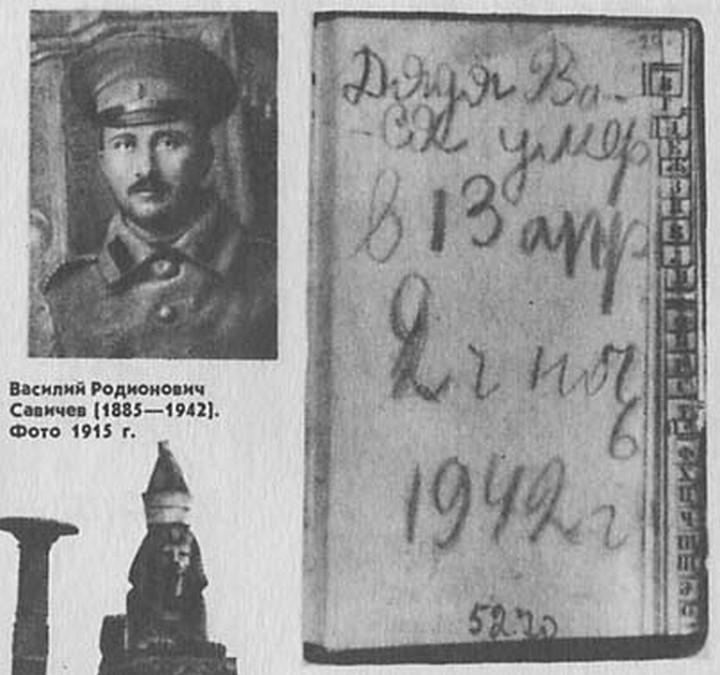 Василий Родионович
Савичев (1885—1942).
Фото 1915 г.
Дядя Ва-
-ся умер
в 13 апр
2 ч ноч
6
1942 г
5270